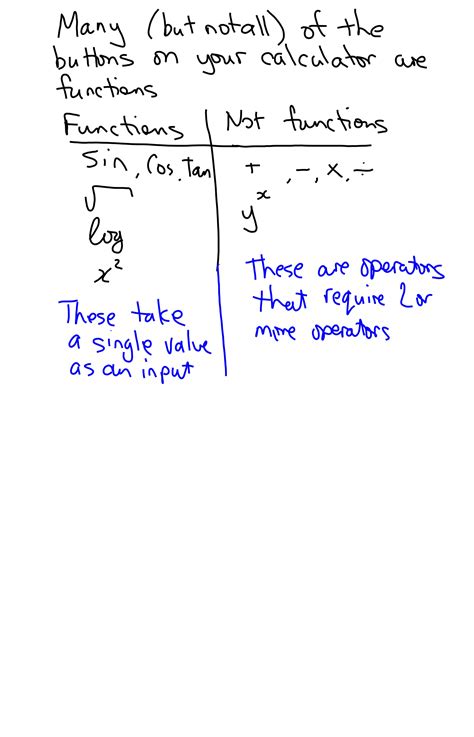 Many (but not all) of the
buttons on your calculator are
functions
Functions | Not functions
sin, cos, tan
√
log
x²
These take
a single value
as an input
+, -, ×, ÷
yˣ
These are operators
that require 2 or
more operators